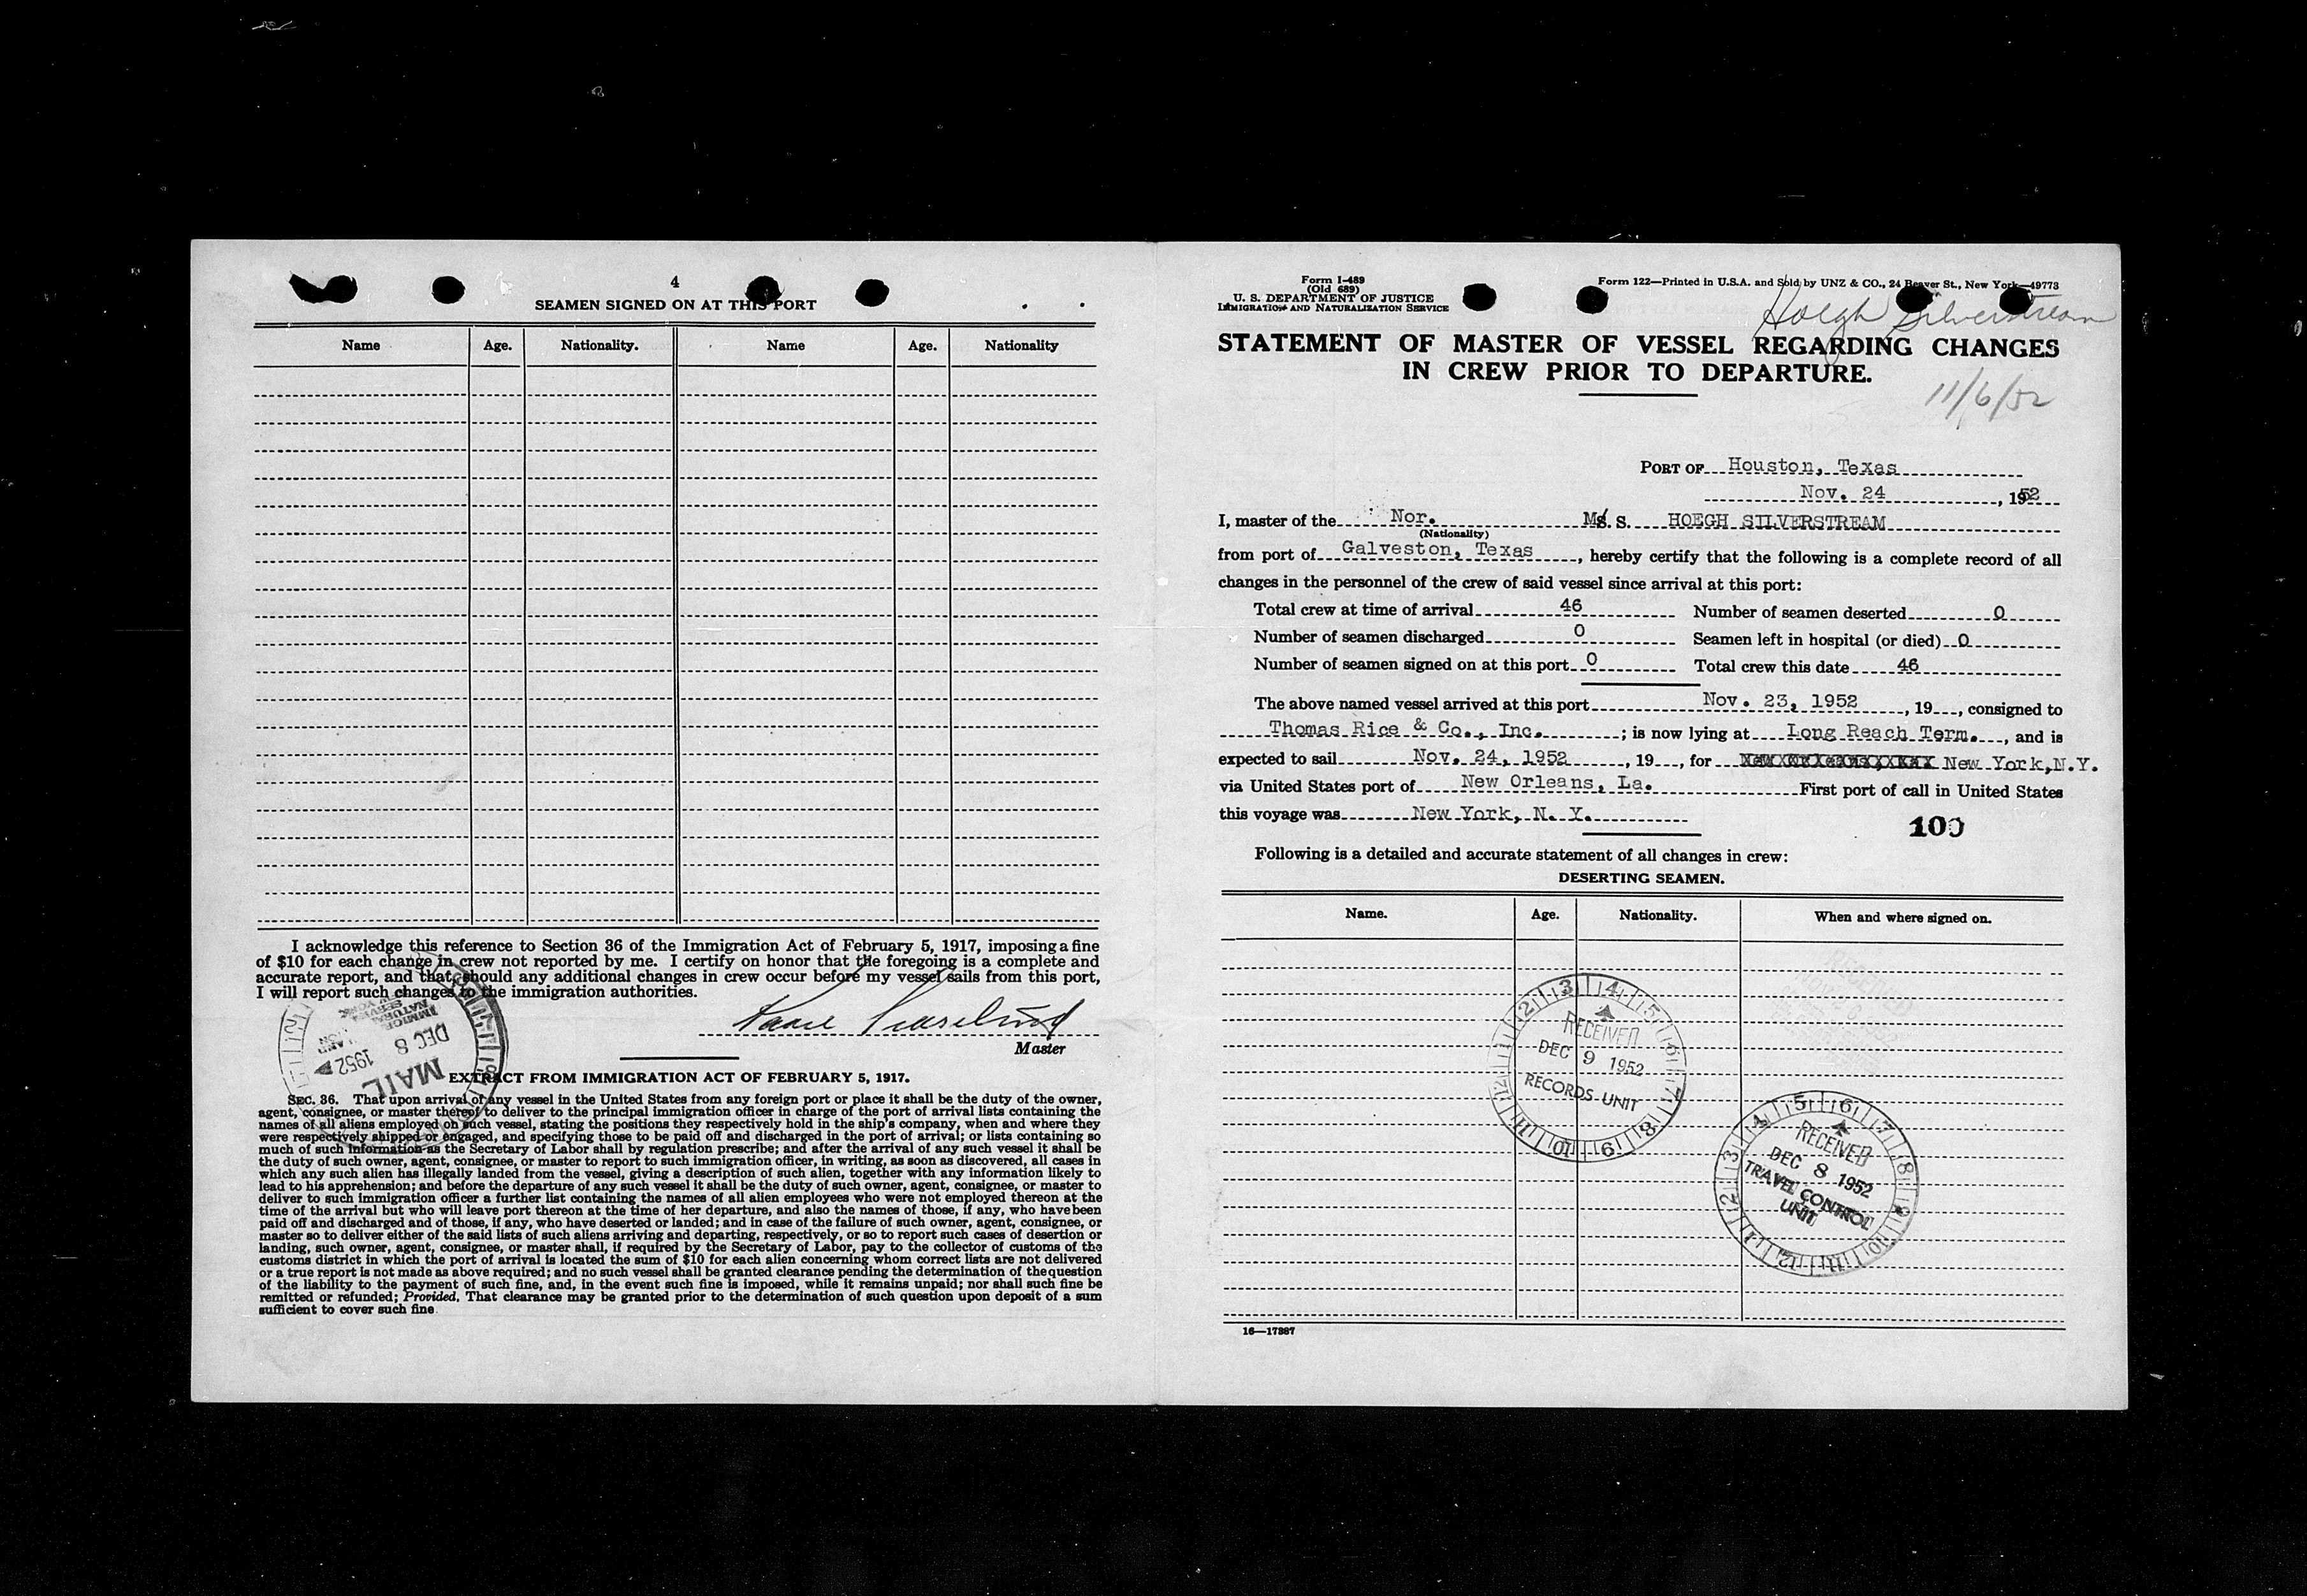 4
SEAMEN SIGNED ON AT THIS PORT
Name Age. Nationality. Name Age. Nationality
I acknowledge this reference to Section 36 of the Immigration Act of February 5, 1917, imposing a fine
of $10 for each change in crew not reported by me. I certify on honor that the foregoing is a complete and
accurate report, and that, should any additional changes in crew occur before my vessel sails from this port,
I will report such changes to the immigration authorities.
Master
MAIL
DEC 8 1952
EXTRACT FROM IMMIGRATION ACT OF FEBRUARY 5, 1917.
SEC. 36. That upon arrival of any vessel in the United States from any foreign port or place it shall be the duty of the owner,
agent, consignee, or master thereof to deliver to the principal immigration officer in charge of the port of arrival lists containing the
names of all aliens employed on such vessel, stating the positions they respectively hold in the ship's company, when and where they
were respectively shipped or engaged, and specifying those to be paid off and discharged in the port of arrival; or lists containing so
much of such information as the Secretary of Labor shall by regulation prescribe; and after the arrival of any such vessel it shall be
the duty of such owner, agent, consignee, or master to report to such immigration officer, in writing, as soon as discovered, all cases in
which any such alien has illegally landed from the vessel, giving a description of such alien, together with any information likely to
lead to his apprehension; and before the departure of any such vessel it shall be the duty of such owner, agent, consignee, or master to
deliver to such immigration officer a further list containing the names of all alien employees who were not employed thereon at the
time of the arrival but who will leave port thereon at the time of her departure, and also the names of those, if any, who have been
paid off and discharged and of those, if any, who have deserted or landed; and in case of the failure of such owner, agent, consignee, or
master so to deliver either of the said lists of such aliens arriving and departing, respectively, or so to report such cases of desertion or
landing, such owner, agent, consignee, or master shall, if required by the Secretary of Labor, pay to the collector of customs of the
customs district in which the port of arrival is located the sum of $10 for each alien concerning whom correct lists are not delivered
or a true report is not made as above required; and no such vessel shall be granted clearance pending the determination of the question
of the liability to the payment of such fine, and, in the event such fine is imposed, while it remains unpaid; nor shall such fine be
remitted or refunded; Provided, That clearance may be granted prior to the determination of such question upon deposit of a sum
sufficient to cover such fine.
Form I-489
(Old 689)
U. S. DEPARTMENT OF JUSTICE
IMMIGRATION AND NATURALIZATION SERVICE
Form 122—Printed in U.S.A. and Sold by UNZ & CO., 24 Beaver St., New York—49773
Hoegh Silverstream
STATEMENT OF MASTER OF VESSEL REGARDING CHANGES
IN CREW PRIOR TO DEPARTURE.
11/6/52
PORT OF Houston, Texas
Nov. 24, 1952
I, master of the Nor. M/S. S. HOEGH SILVERSTREAM
(Nationality)
from port of Galveston, Texas, hereby certify that the following is a complete record of all
changes in the personnel of the crew of said vessel since arrival at this port:
Total crew at time of arrival 46 Number of seamen deserted 0
Number of seamen discharged 0 Seamen left in hospital (or died) 0
Number of seamen signed on at this port 0 Total crew this date 46
The above named vessel arrived at this port Nov. 23, 1952, 19, consigned to
Thomas Rice & Co., Inc.; is now lying at Long Reach Term., and is
expected to sail Nov. 24, 1952, 19, for New York, N.Y.
via United States port of New Orleans, La. First port of call in United States
this voyage was New York, N. Y.
100
Following is a detailed and accurate statement of all changes in crew:
DESERTING SEAMEN.
Name. Age. Nationality. When and where signed on.
RECEIVED
DEC 9 1952
RECORDS UNIT
RECEIVED
DEC 8 1952
TRAVEL CONTROL
UNIT
16—17887